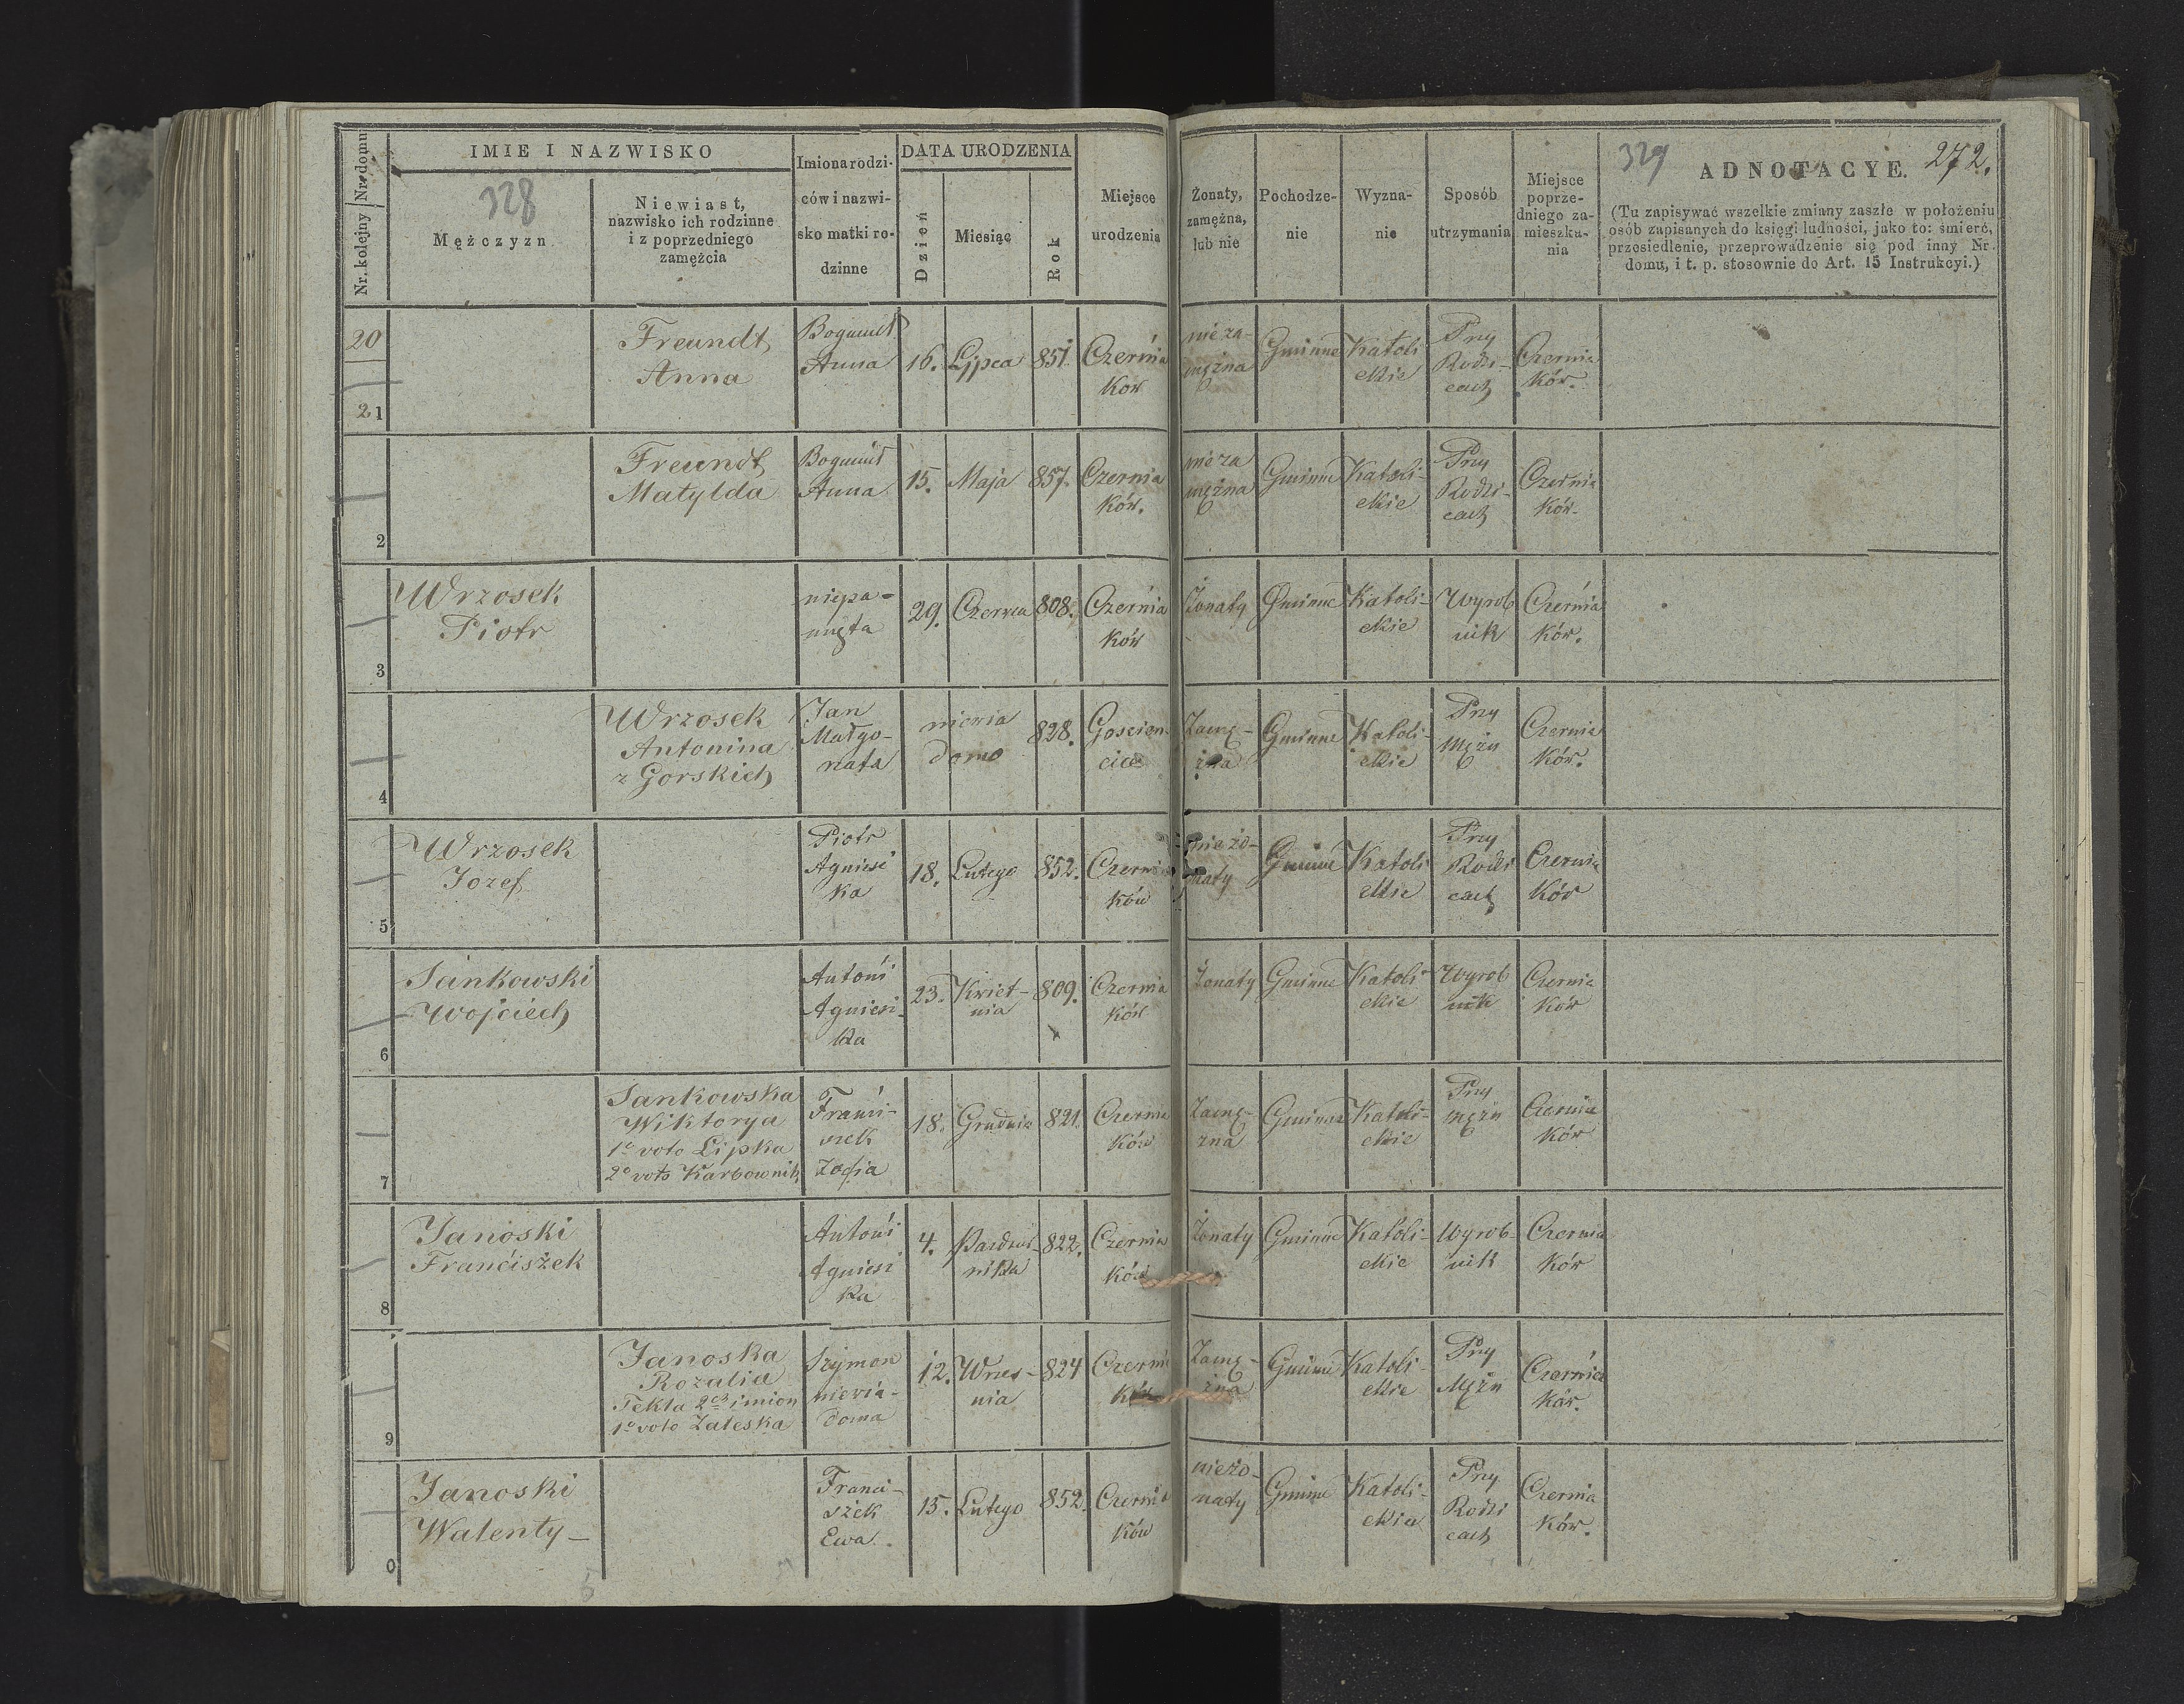 Nr. kolejny | Nr. domu
IMIE I NAZWISKO
328
Mężczyzn
Niewiast,
nazwisko ich rodzinne
i z poprzedniego
zamężcia
Imiona rodzi-
ców i nazwi-
sko matki ro-
dzinne
DATA URODZENIA
Dzień
Miesiąc
Rok
Miejsce
urodzenia
Żonaty,
zamężna,
lub nie
Pochodze-
nie
Wyzna-
nie
Sposób
utrzymania
Miejsce
poprze-
dniego za-
mieszka-
nia
329
ADNOTACYE.
272.
(Tu zapisywać wszelkie zmiany zaszłe w położeniu
osób zapisanych do księgi ludności, jako to: śmierć,
przesiedlenie, przeprowadzenie się pod inny Nr.
domu, i t. p. stosownie do Art. 15 Instrukcyi.)
20
21
Freundt
Anna
Bogumił
Anna
16.
Lipca
851.
Czernia
ków
nie za-
mężna
Gminne
Katoli
ckie
Przy
Rodzi-
cach
Czernia
ków.
2
Freundt
Matylda
Bogumił
Anna
15.
Maja
857.
Czernia
ków.
nie za
mężna
Gminne
Katoli-
ckie
Przy
Rodzi-
cach
Czernia
ków.
3
Wrzosek
Piotr
niepa-
mięta
29.
Czerwca
808.
Czernia
ków
Żonaty
Gminne
Katoli-
ckie
Wyrob
nik
Czernia
ków.
4
Wrzosek
Antonina
z Gorskich
Jan
Małgo-
rzata
niewia
domo
828.
Goscien-
cice
Zamę-
żna
Gminne
Katoli-
ckie
Przy
Mężu
Czernia
ków.
5
Wrzosek
Jozef
Piotr
Agniesz
ka
18.
Lutego
852.
Czernia
ków
nie żo-
naty
Gminne
Katoli
ckie
Przy
Rodzi
cach
Czernia
ków
6
Sankowski
Wojciech
Antoni
Agniesz-
ka
23.
Kwiet-
nia
809.
Czernia
ków
Żonaty
Gminne
Katoli
ckie
Wyrob
nik
Czernia
ków
7
Sankowska
Wiktorya
1o voto Lipka
2o voto Karbownik
Franci-
szek
Zofia
18.
Grudnia
821.
Czernia
ków
Zamę-
żna
Gminne
Katoli-
ckie
Przy
mężu
Czernia
ków
8
Janoski
Franciszek
Antoni
Agniesz
ka
4.
Pazdzier-
nika
822.
Czernia
ków
Żonaty
Gminne
Katoli-
ckie
Wyrob-
nik
Czernia
ków
9
Janoska
Rozalia
Tekla 2ch imion
1o voto Zaleska
Szymon
niewia-
doma
12.
Wrześ-
nia
824
Czernia
ków
Zamę-
żna
Gminne
Katoli-
ckie
Przy
Mężu
Czernia
ków.
0
Janoski
Walenty
Franci-
szek
Ewa
15.
Lutego
852.
Czernia
ków
nieżo-
naty
Gminne
Katoli-
ckie
Przy
Rodzi
cach
Czernia
ków.